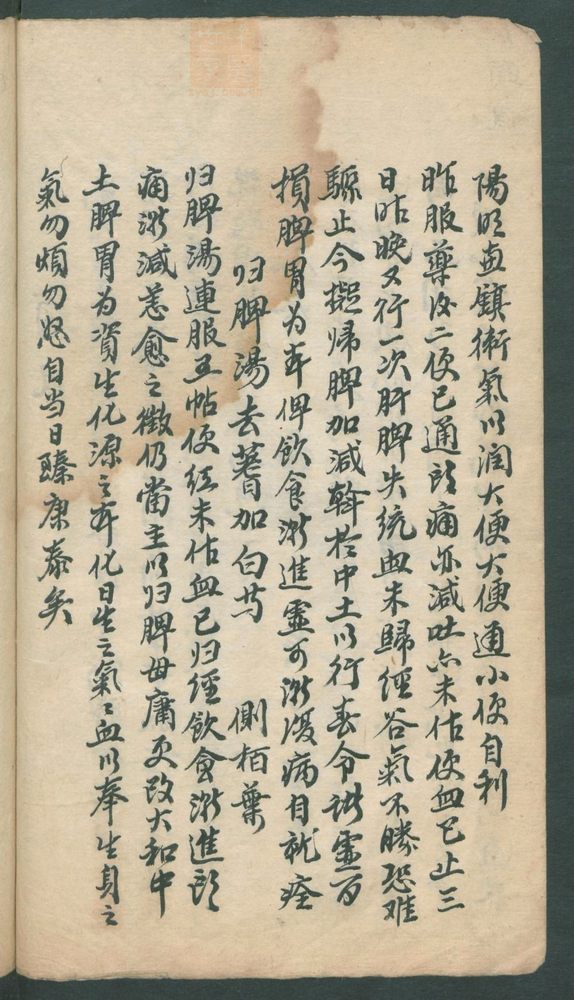 陽明直鎮衝氣以润大便大便通小便自利
昨服藥後二便已通頭痛亦减吐亦未作便血已止三
日昨晚又行一次肝脾失统血未歸經谷氣不勝恐难
驟止今擬歸脾加減斡於中土以行春令诸虚百
損脾胃为本俾飲食漸進虚可漸復病自就痊
归脾湯去蓍加白芍 側栢葉
归脾湯連服五帖便红未作血已归經飲食漸進頭
痛漸減恙愈之徵仍當主以归脾毋庸更改大和中
土脾胃为資生化源之本化日生之氣氣血以奉生身之
氣勿煩勿怒自当日臻康泰矣